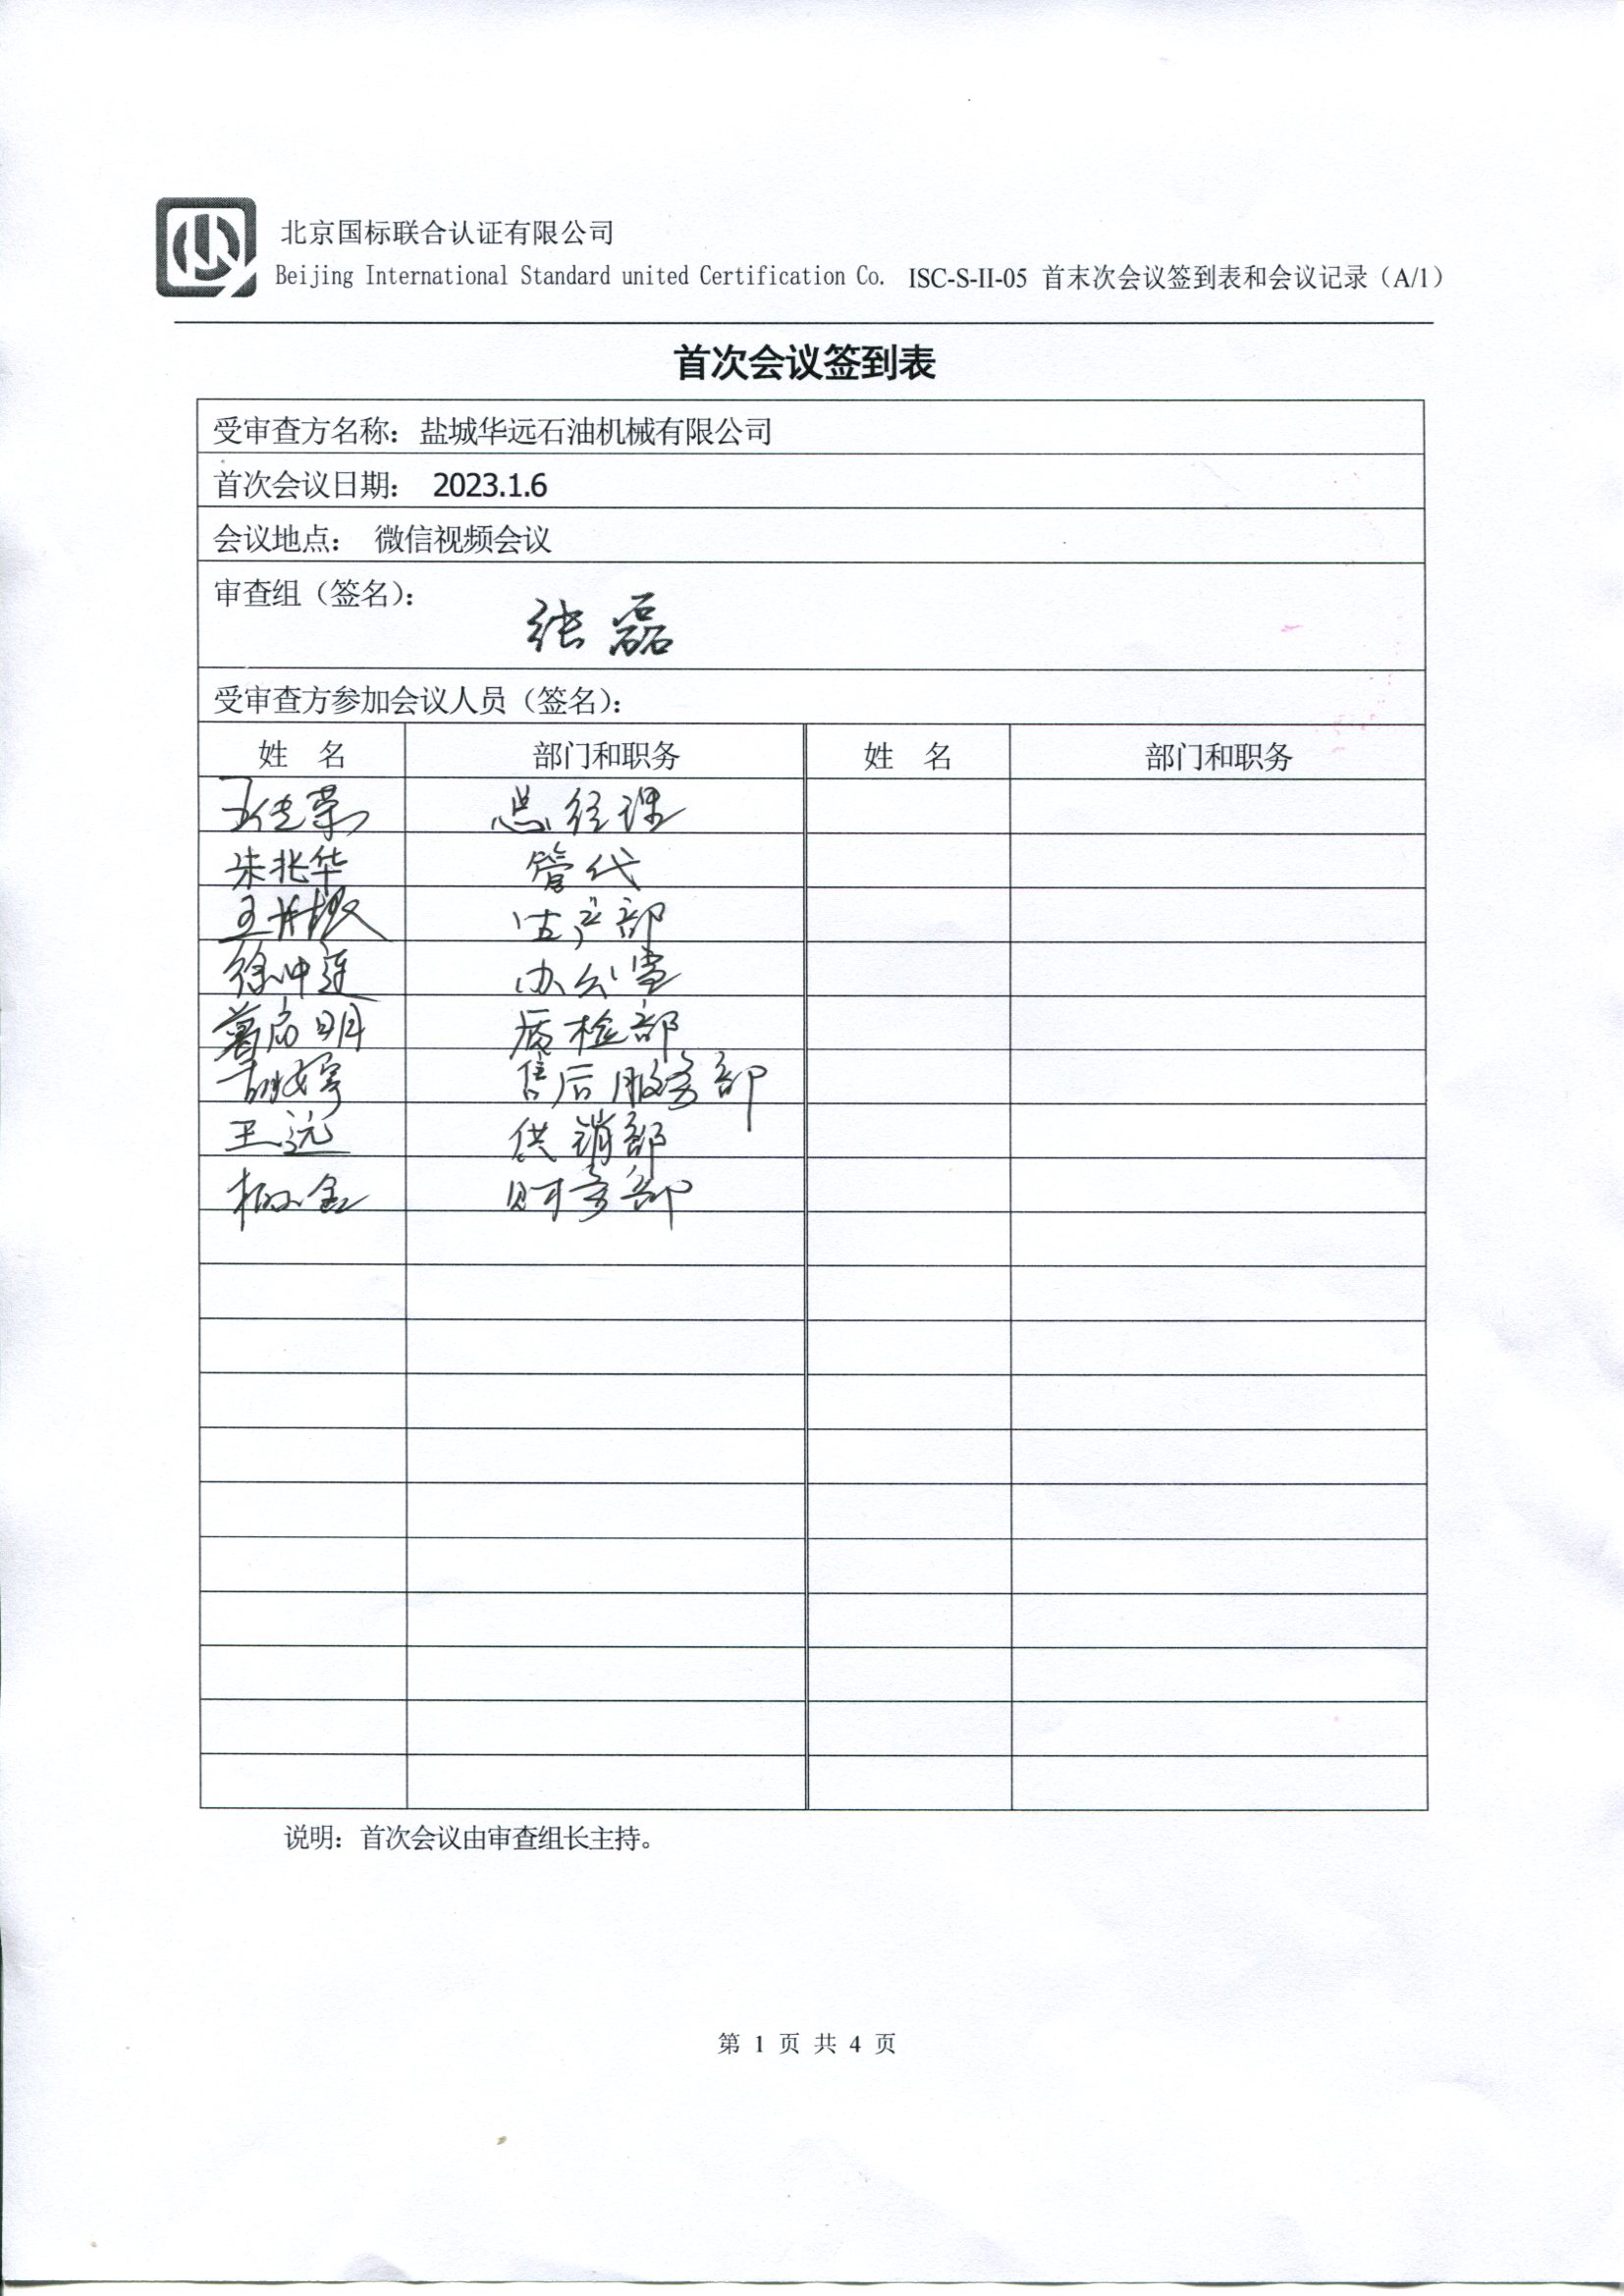 北京国标联合认证有限公司
Beijing International Standard united Certification Co. ISC-S-II-05 首末次会议签到表和会议记录（A/1）
首次会议签到表
受审查方名称：盐城华远石油机械有限公司
首次会议日期： 2023.1.6
会议地点： 微信视频会议
审查组（签名）： 张磊
受审查方参加会议人员（签名）：
姓 名 部门和职务 姓 名 部门和职务
总经理
朱兆华 管代
生产部
徐冲连 办公室
质检部
售后服务部
王远 供销部
财务部
说明：首次会议由审查组长主持。
第 1 页 共 4 页